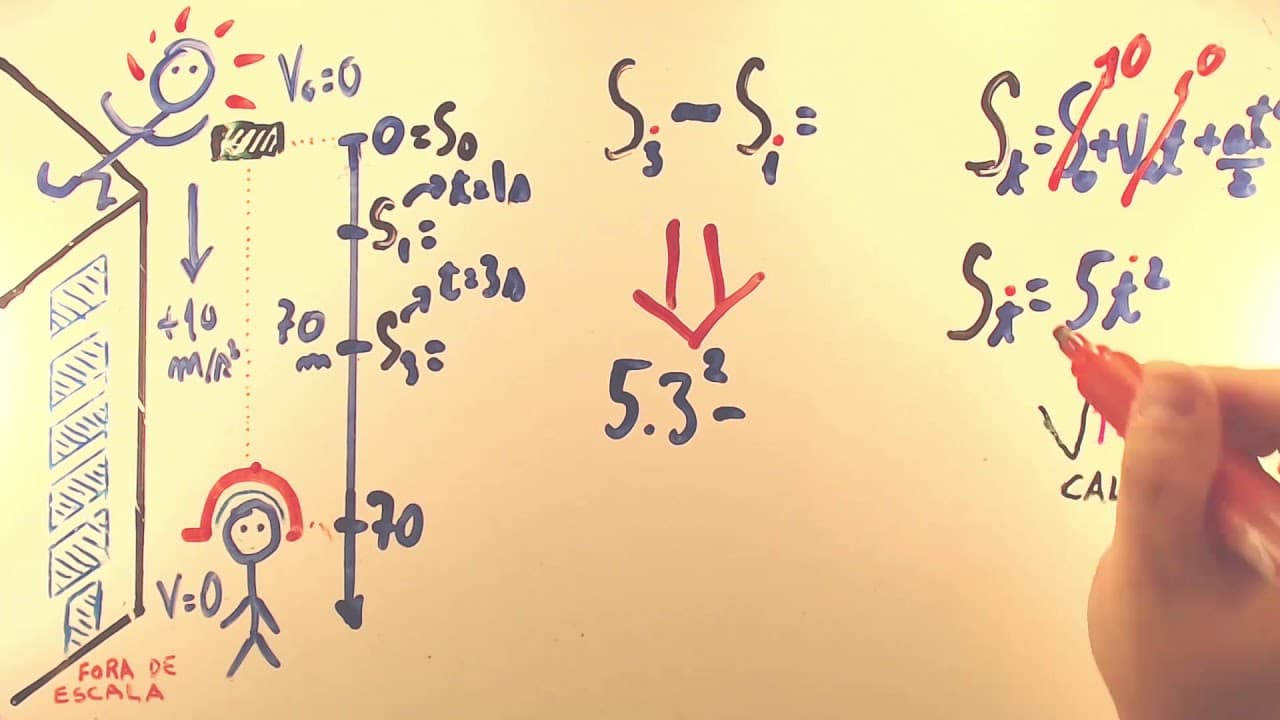 V₀=0
0=S₀
t=1s
S₁=
t=3s
+10
m/s²
70
m
S₃=
70
V=0
FORA DE
ESCALA
S₃-S₁=
5.3²-
0 0
Sₜ=S₀+V₀t+at²/2
Sₜ=5t²
CAL